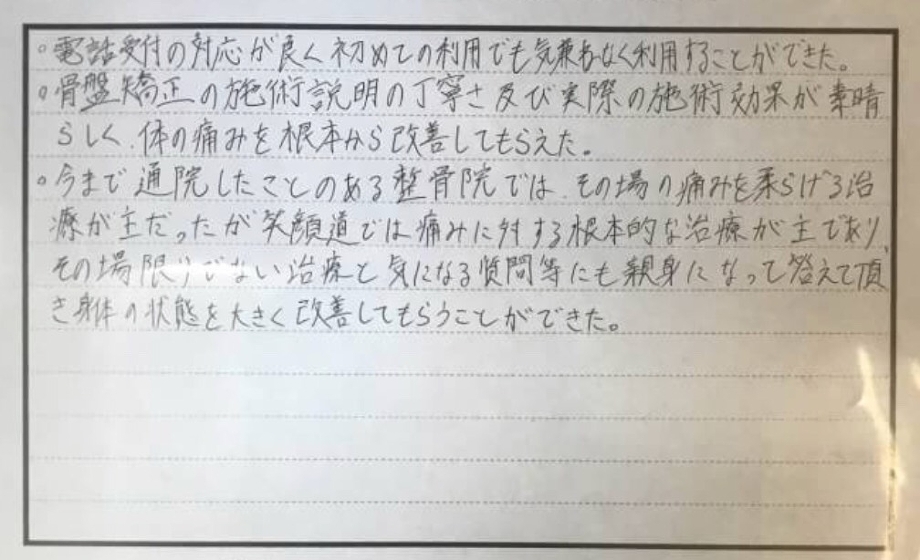 。電話受付の対応が良く初めての利用でも気兼ねなく利用することができた。
。骨盤矯正の施術説明の丁寧さ及び実際の施術効果が素晴
らしく、体の痛みを根本から改善してもらえた。
。今まで通院したことのある整骨院では、その場の痛みを柔らげる治
療が主だったが笑顔道では痛みに対する根本的な治療が主であり、
その場限りでない治療と気になる質問等にも親身になって答えて頂
き身体の状態を大きく改善してもらうことができた。